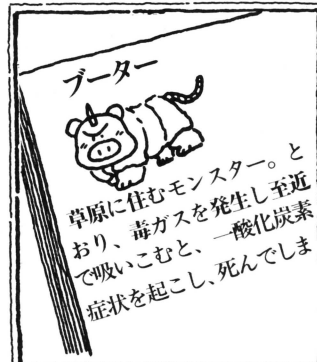 ブーター
草原に住むモンスター。と
おり、毒ガスを発生し至近
で吸いこむと、一酸化炭素
症状を起こし、死んでしま